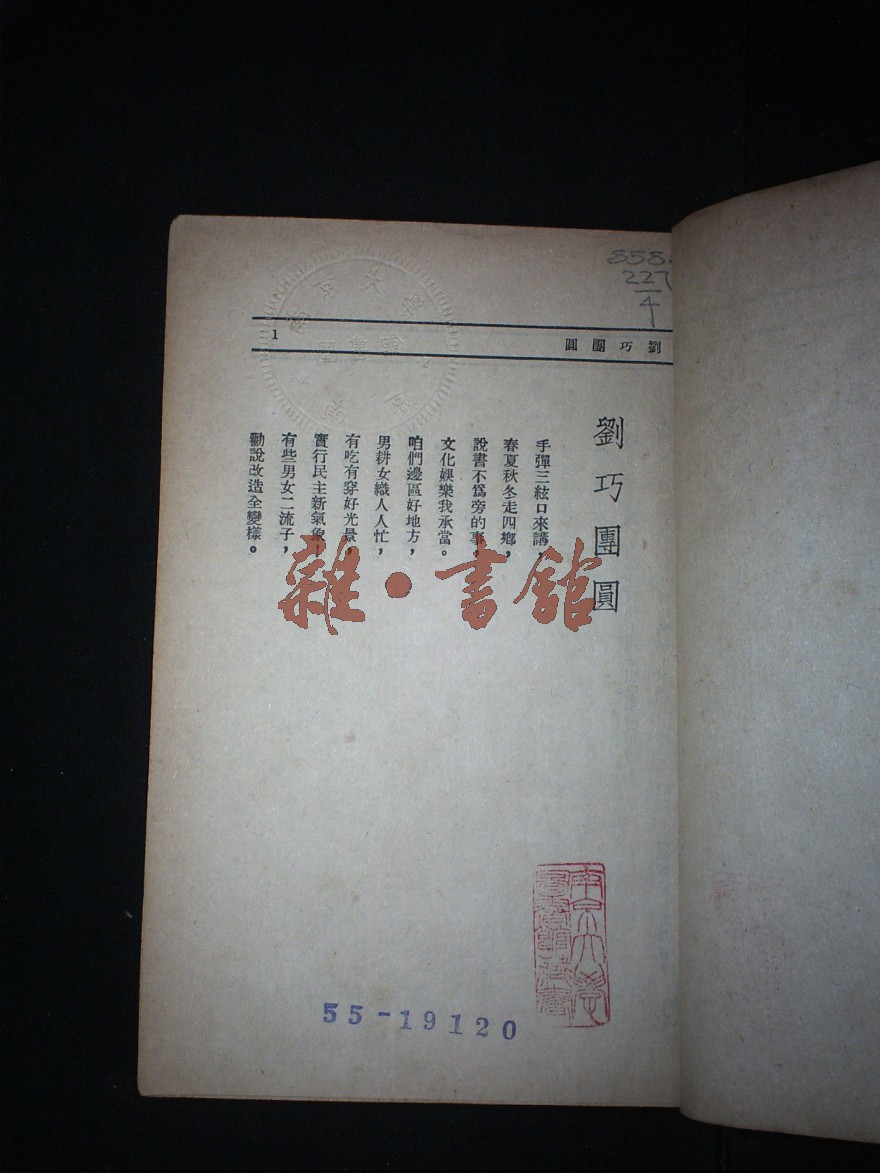 858.
227
4
劉巧團圓
1
劉巧團圓
手彈三絃口來講，
春夏秋冬走四鄉，
說書不爲旁的事，
文化娛樂我承當。
咱們邊區好地方，
男耕女織人人忙，
有吃有穿好光景，
實行民主新氣象！
有些男女二流子，
勸說改造全變樣。
雜·書館
南京大學
圖書館藏書
55-19120